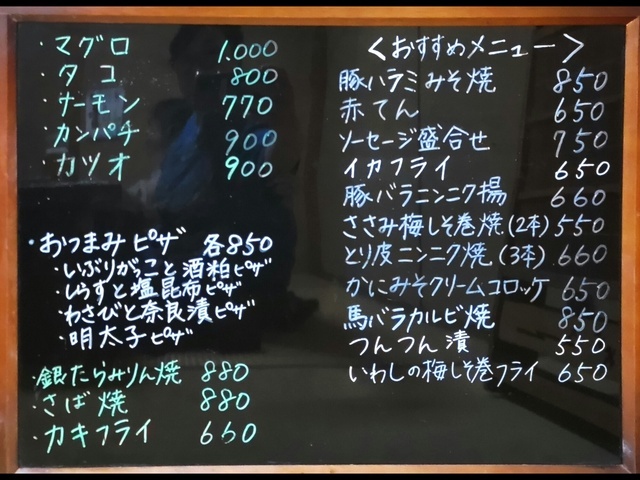 ・マグロ 1,000
・タコ 800
・サーモン 770
・カンパチ 900
・カツオ 900
・おつまみピザ 各850
・いぶりがっこと酒粕ピザ
・しらすと塩昆布ピザ
・わさびと奈良漬ピザ
・明太子ピザ
・銀たらみりん焼 880
・さば焼 880
・カキフライ 660
＜おすすめメニュー＞
豚ハラミみそ焼 850
赤てん 650
ソーセージ盛合せ 750
イカフライ 650
豚バラニンニク揚 660
ささみ梅しそ巻焼(2本) 550
とり皮ニンニク焼(3本) 660
かにみそクリームコロッケ 650
馬バラカルビ焼 850
つんつん漬 550
いわしの梅しそ巻フライ 650